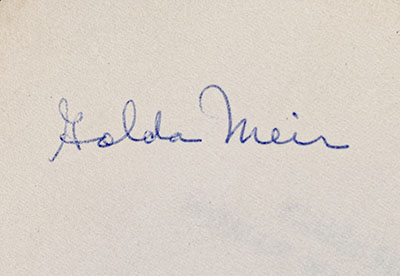 Golda Meir